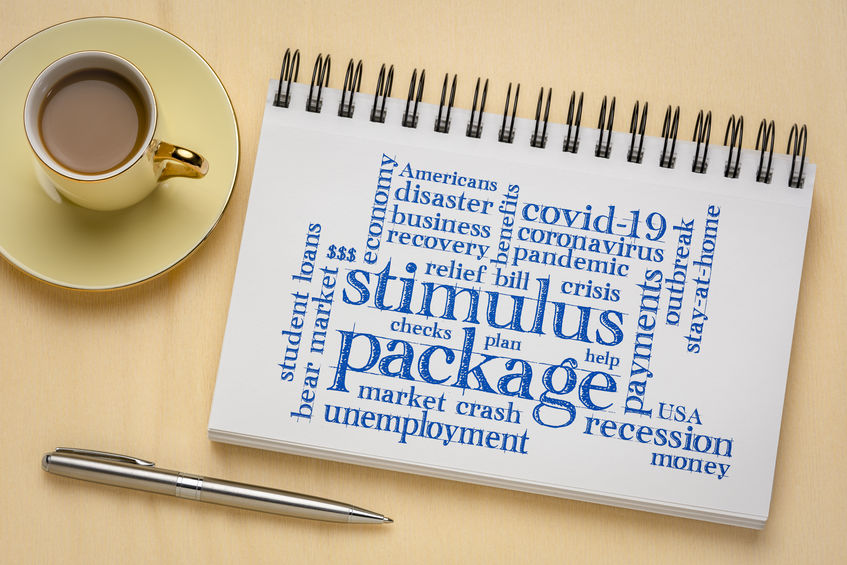 economy
Americans
disaster
business
recovery
benefits
covid-19
coronavirus
pandemic
outbreak
stay-at-home
student loans
bear market
$$$
relief bill
crisis
stimulus
checks
plan
help
package
payments
market crash
unemployment
USA
recession
money